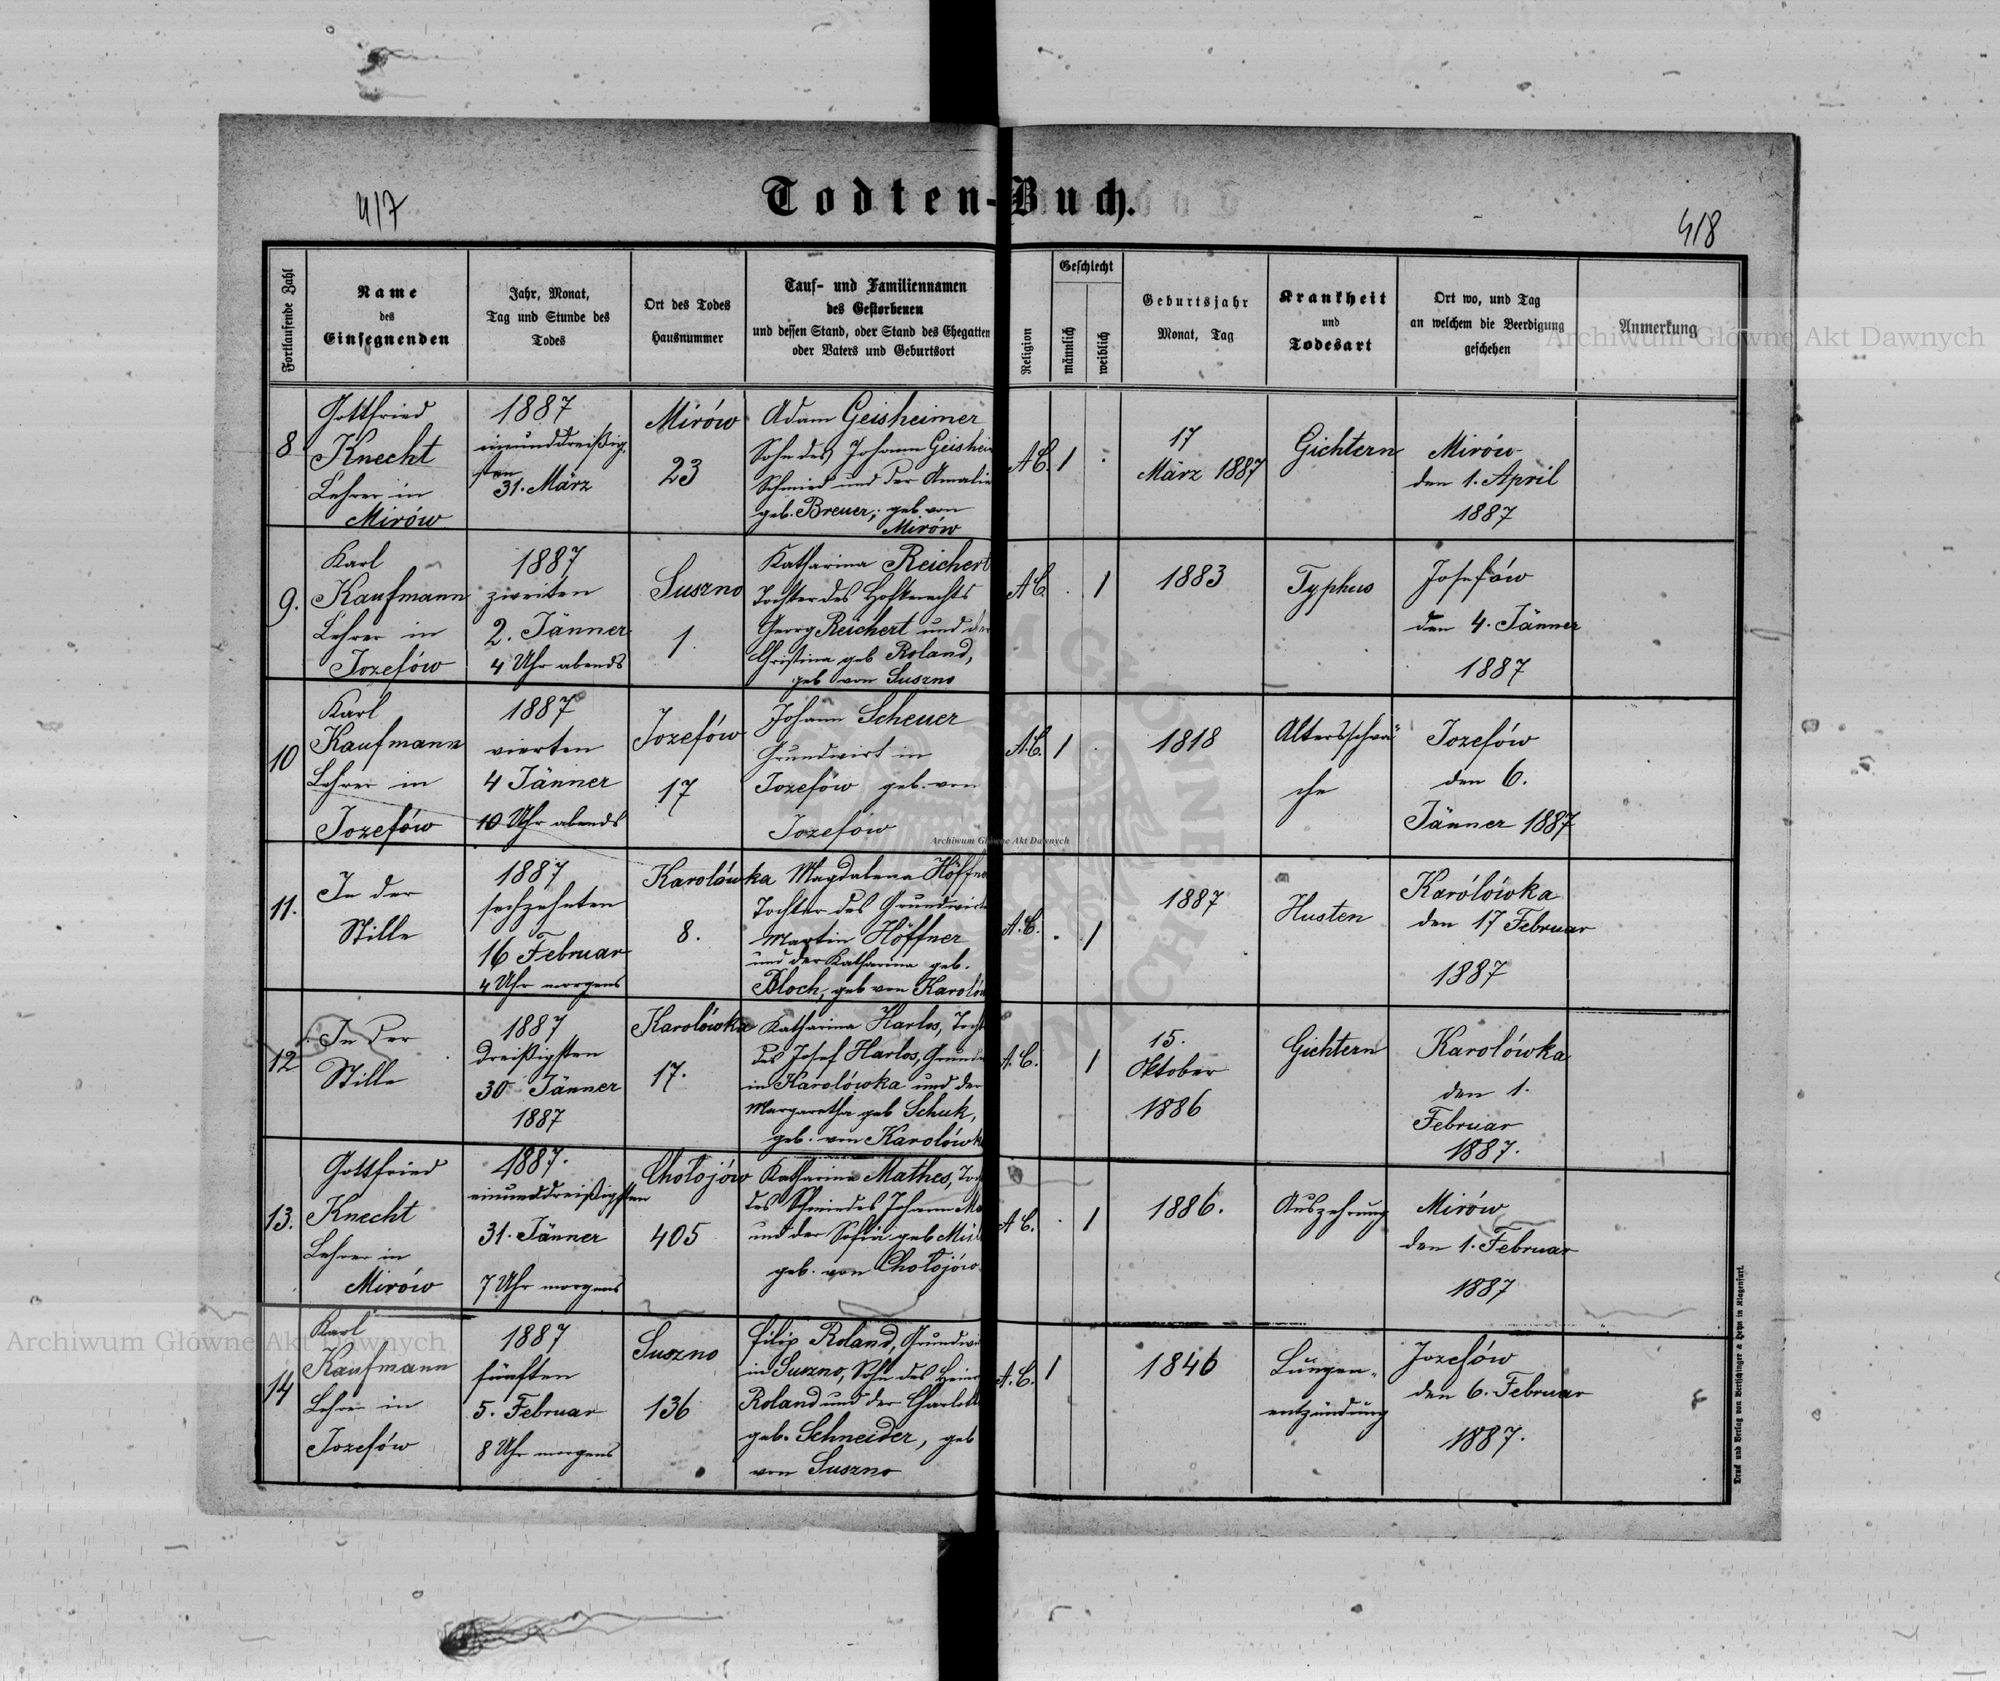 417
Todten-Buch.
418
Fortlaufende Zahl
Name
des
Einsegnenden
Jahr, Monat,
Tag und Stunde des
Todes
Ort des Todes
Hausnummer
Tauf- und Familiennamen
des Gestorbenen
und dessen Stand, oder Stand des Ehegatten
oder Vaters und Geburtsort
Religion
Geschlecht
männlich
weiblich
Geburtsjahr
Monat, Tag
Krankheit
und
Todesart
Ort wo, und Tag
an welchem die Beerdigung
geschehen
Anmerkung
8
Gottfried
Knecht
Lehrer in
Mirów
1887
einunddreißig-
sten
31. März
Mirów
23
Adam Geisheimer
Sohn des Johann Geishei
Schmied und der Amalie
geb. Breuer, geb. von
Mirów
A C.
1
17
März 1887
Gichtern
Mirów
den 1. April
1887
9.
Karl
Kaufmann
Lehrer in
Jozefów
1887
zweiten
2. Jänner
4 Uhr abends
Suszno
1
Katharina Reichert
Tochter des Hofknechts
Georg Reichert und der
Christina geb Roland,
geb von Suszno
A C.
1
1883
Typhus
Josefów
den 4. Jänner
1887
10
Karl
Kaufmann
Lehrer in
Jozefów
1887
vierten
4 Jänner
10 Uhr abends
Jozefów
17
Johann Scheuer
Grundwirt in
Jozefów geb. von
Jozefów
A. C.
1
1818
Altersschwä
che
Jozefów
den 6.
Jänner 1887
11.
In der
Stille
1887
sechzehnten
16 Februar
4 Uhr morgens
Karolówka
8.
Magdalena Höffne
Tochter des Grundwirts
Martin Höffner
und der Katharina geb.
Bloch, geb von Karolów
A. C.
1
1887
Husten
Karólówka
den 17 Februar
1887
12
In der
Stille
1887
dreißigsten
30 Jänner
1887
Karolówka
17.
Katharina Harlos, Tocht
des Josef Harlos, Grundw
in Karolówka und der
Margaretha geb Schuk,
geb. von Karolówk
A. C.
1
15.
Oktober
1886
Gichtern
Karolówka
den 1.
Februar
1887.
13.
Gottfried
Knecht
Lehrer in
Mirów
1887.
einunddreißigsten
31. Jänner
7 Uhr morgens
Chołojów
405
Katharina Mathes, Toch
des Schmiedes Johann Ma
und der Sofia geb Mül
geb. von Chołojów
A C.
1
1886.
Auszehrung
Mirów
den 1. Februar
1887
14
Karl
Kaufmann
Lehrer in
Jozefów
1887
fünften
5. Februar
8 Uhr morgens
Suszno
136
Filip Roland, Grundwi
in Suszno, Sohn des Hein
Roland und der Charlott
geb. Schneider, geb
von Suszno
A. C.
1
1846
Lungen-
entzündung
Jozefów
den 6. Februar
1887.
Druck und Verlag von Bertschinger & Heyn in Klagenfurt.
Archiwum Główne Akt Dawnych
Archiwum Główne Akt Dawnych
Archiwum Główne Akt Dawnych